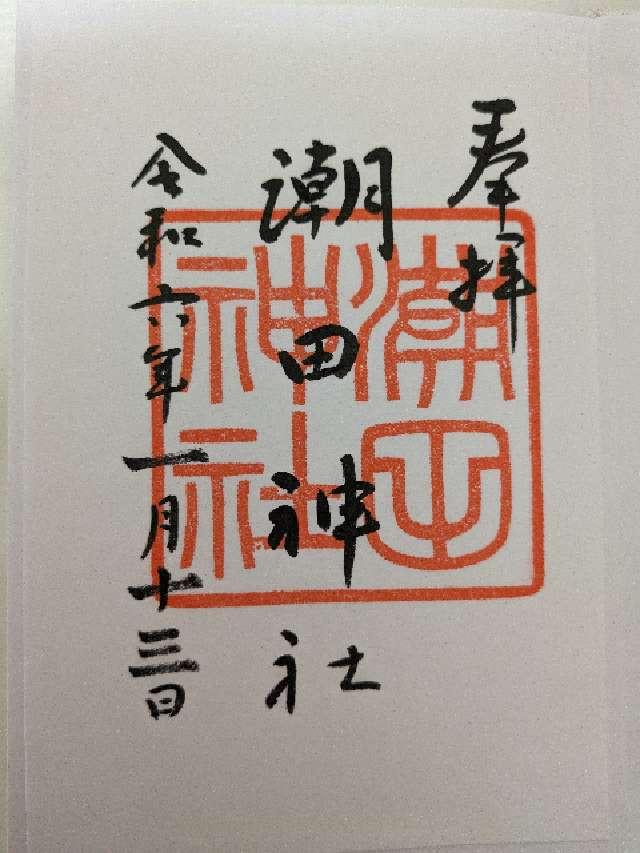 奉拝
潮田神社
令和六年一月十三日
潮田
神社